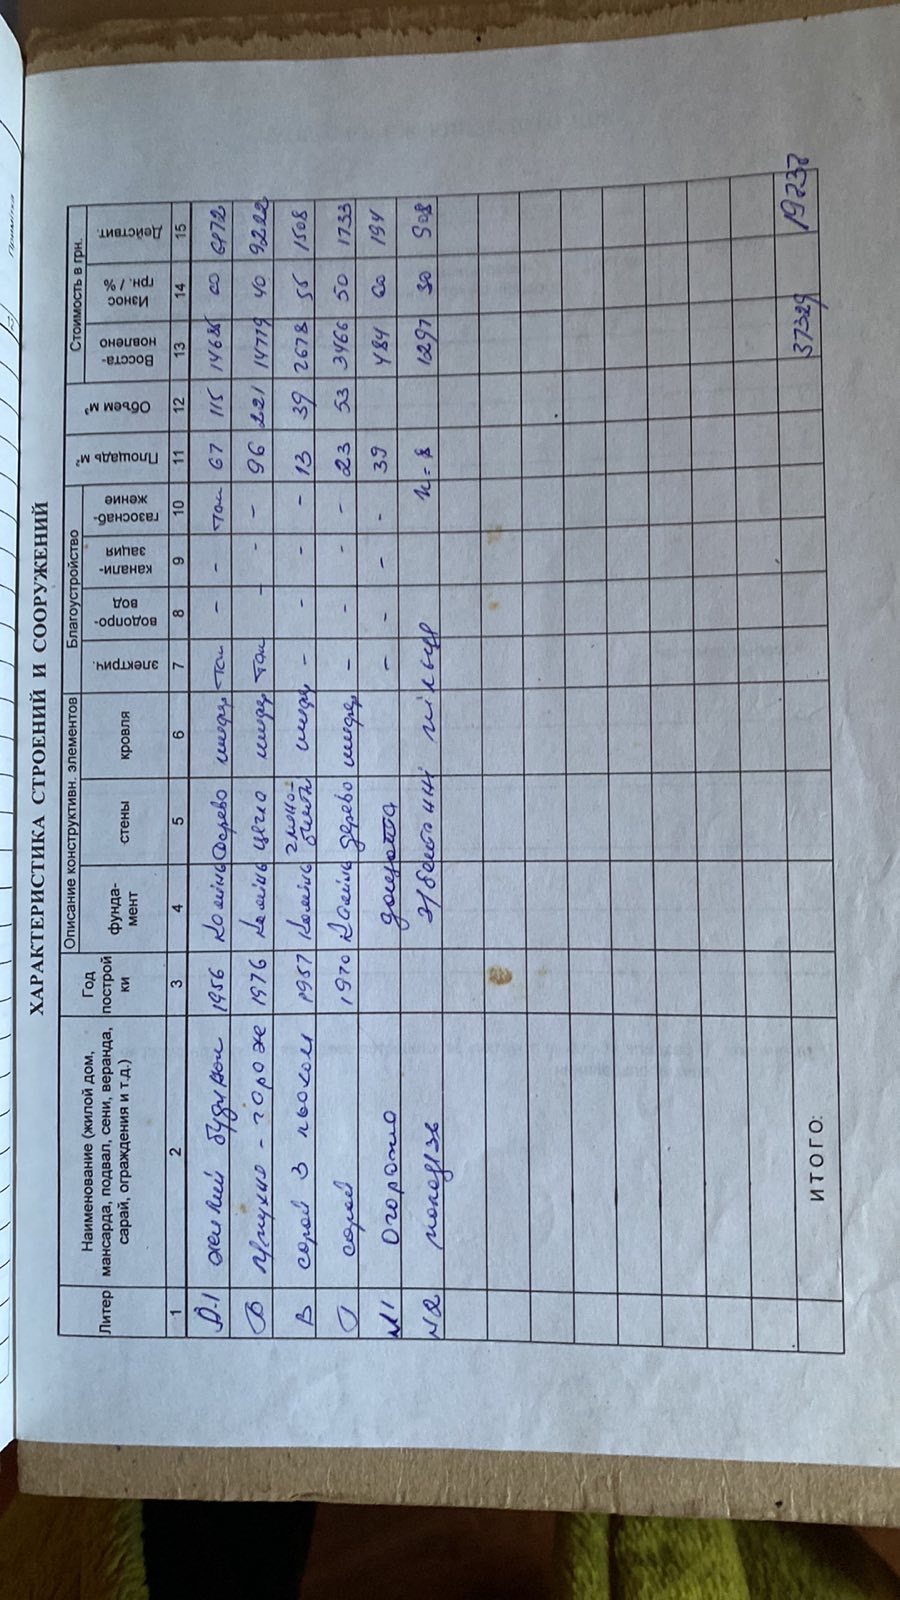 ХАРАКТЕРИСТИКА СТРОЕНИЙ И СООРУЖЕНИЙ
Литер
Наименование (жилой дом, мансарда, подвал, сени, веранда, сарай, ограждения и т.д.)
Год построй ки
Описание конструктивн. элементов
фунда- мент
стены
кровля
Благоустройство
электрич.
водопро- вод
канали- зация
газоснаб- жение
Площадь м²
Объем м³
Стоимость в грн.
Восста- новлено
Износ грн. / %
Действит.
1 2 3 4 5 6 7 8 9 10 11 12 13 14 15
А-1 жилий будинок 1956 камінь дерево шифер так - - так 67 115 14685
Б кухня - гараж 1976 камінь цегла шифер так - - - 96 221 14779 40
В сарай з 1957 камінь шифер - - - - 13 39 2678 55 1508
Г сарай 1970 камінь дерево шифер - - - - 23 53 3466 50 1733
№1 Огорожа - - - - 39 484 60 194
№2 колодязь з/бетонні кільця 1297 30 908
ИТОГО: 37329